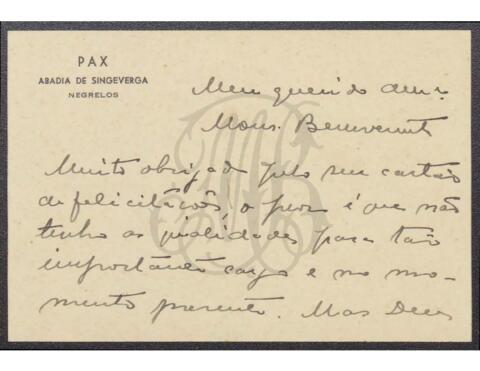 PAX
ABADIA DE SINGEVERGA
NEGRELOS
Meu querido am.º
Mons. Benevenuto
Muito obrigado pelo seu cartão
de felicitações, o peor é que não
tenho as qualidades para tão
importante cargo e no mo-
mento presente. Mas Deus